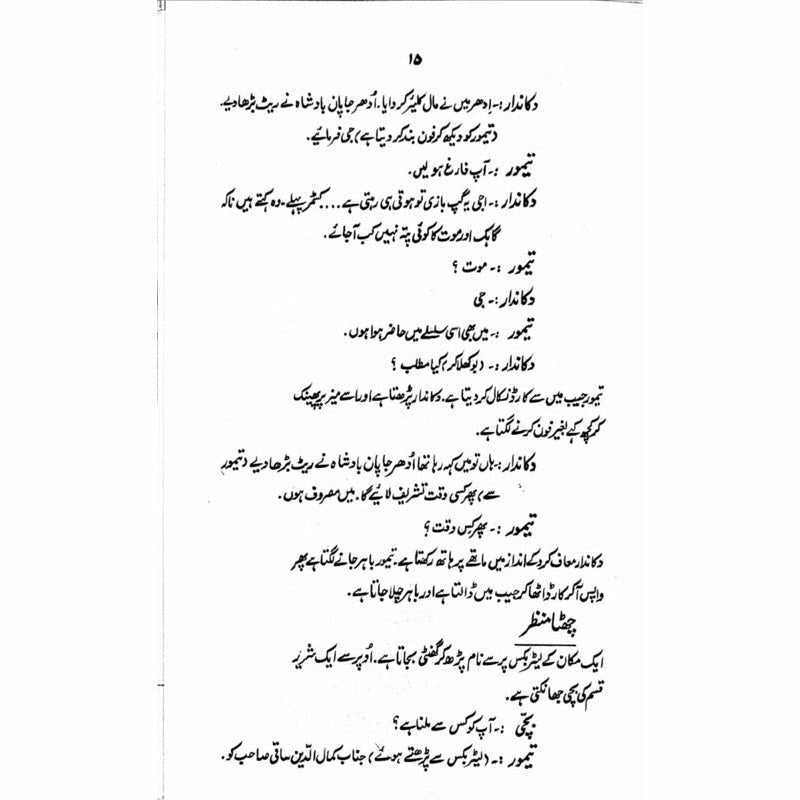 ۱۵
دکاندار :۔ اِدھر میں نے مال کلیئر کروایا. اُدھر جاپان بادشاہ نے ریٹ بڑھا دیے.
(تیمور کو دیکھ کر فون بند کر دیتا ہے) جی فرمائیے.
تیمور :۔ آپ فارغ ہو لیں.
دکاندار :۔ اجی یہ گپ بازی تو ہوتی ہی رہتی ہے .... کسٹمر پہلے۔ وہ کہتے ہیں نا کہ
گاہک اور موت کا کوئی پتہ نہیں کب آجائے.
تیمور :۔ موت ؟
دکاندار :۔ جی
تیمور :۔ میں بھی اسی سلسلے میں حاضر ہوا ہوں.
دکاندار :۔ (بوکھلا کر) کیا مطلب ؟
تیمور جیب میں سے کارڈ نکال کر دیتا ہے. دکاندار پڑھتا ہے اور اسے میز پر پھینک
کر کچھ کہے بغیر فون کرنے لگتا ہے.
دکاندار :۔ ہاں تو میں کہہ رہا تھا اُدھر جاپان بادشاہ نے ریٹ بڑھا دیے (تیمور
سے) پھر کسی وقت تشریف لائیے گا. میں مصروف ہوں.
تیمور :۔ پھر کس وقت ؟
دکاندار معاف کرو کے انداز میں ماتھے پر ہاتھ رکھتا ہے. تیمور باہر جانے لگتا ہے پھر
واپس آکر کارڈ اٹھا کر جیب میں ڈالتا ہے اور باہر چلا جاتا ہے.
چھٹا منظر
ایک مکان کے لیٹر بکس پر سے نام پڑھ کر گھنٹی بجاتا ہے. اُوپر سے ایک شریر
قسم کی بچی جھانکتی ہے.
بچّی :۔ آپ کو کس سے ملنا ہے ؟
تیمور :۔ (لیٹر بکس سے پڑھتے ہوئے) جناب کمال الدّین ساقی صاحب کو.